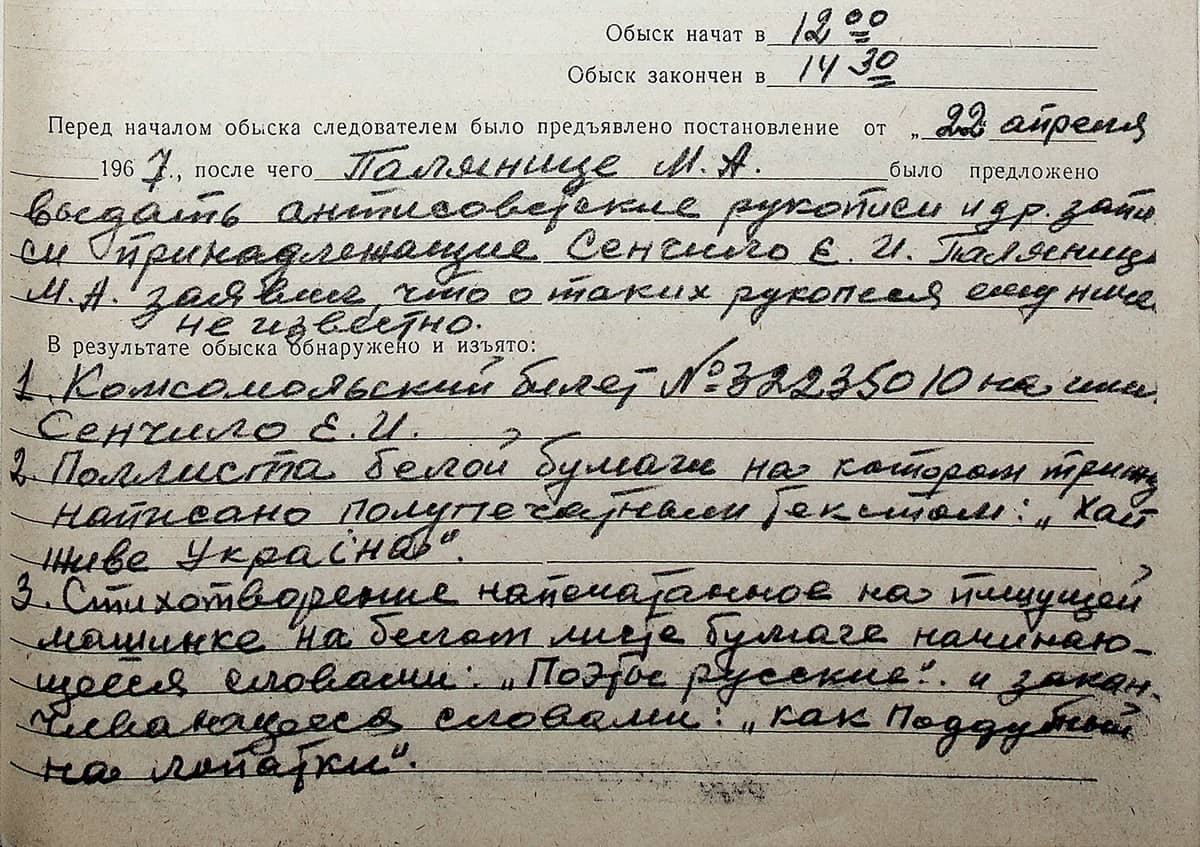 Обыск начат в 12 00
Обыск закончен в 14 30
Перед началом обыска следователем было предъявлено постановление от „ 22 апреля
1967., после чего Паляснице М. А. было предложено
выдать антисоветские рукописи и др. запи
си принадлежащие Сенчило Е. И. Паляснице
М. А. заявил, что о таких рукописях ему ниче
не известно.
В результате обыска обнаружено и изъято:
1. Комсомольский билет № 32235010 на имя
Сенчило Е. И.
2. Поллиста белой бумаги на котором трижд
написано полупечатным текстом: „Хай
живе Україна“.
3. Стихотворение напечатанное на пишущей
машинке на белом листе бумаге начинаю-
щееся словами: „Поэты русские“. и закан-
чивающееся словами: „как Поддубный
на лопатки“.